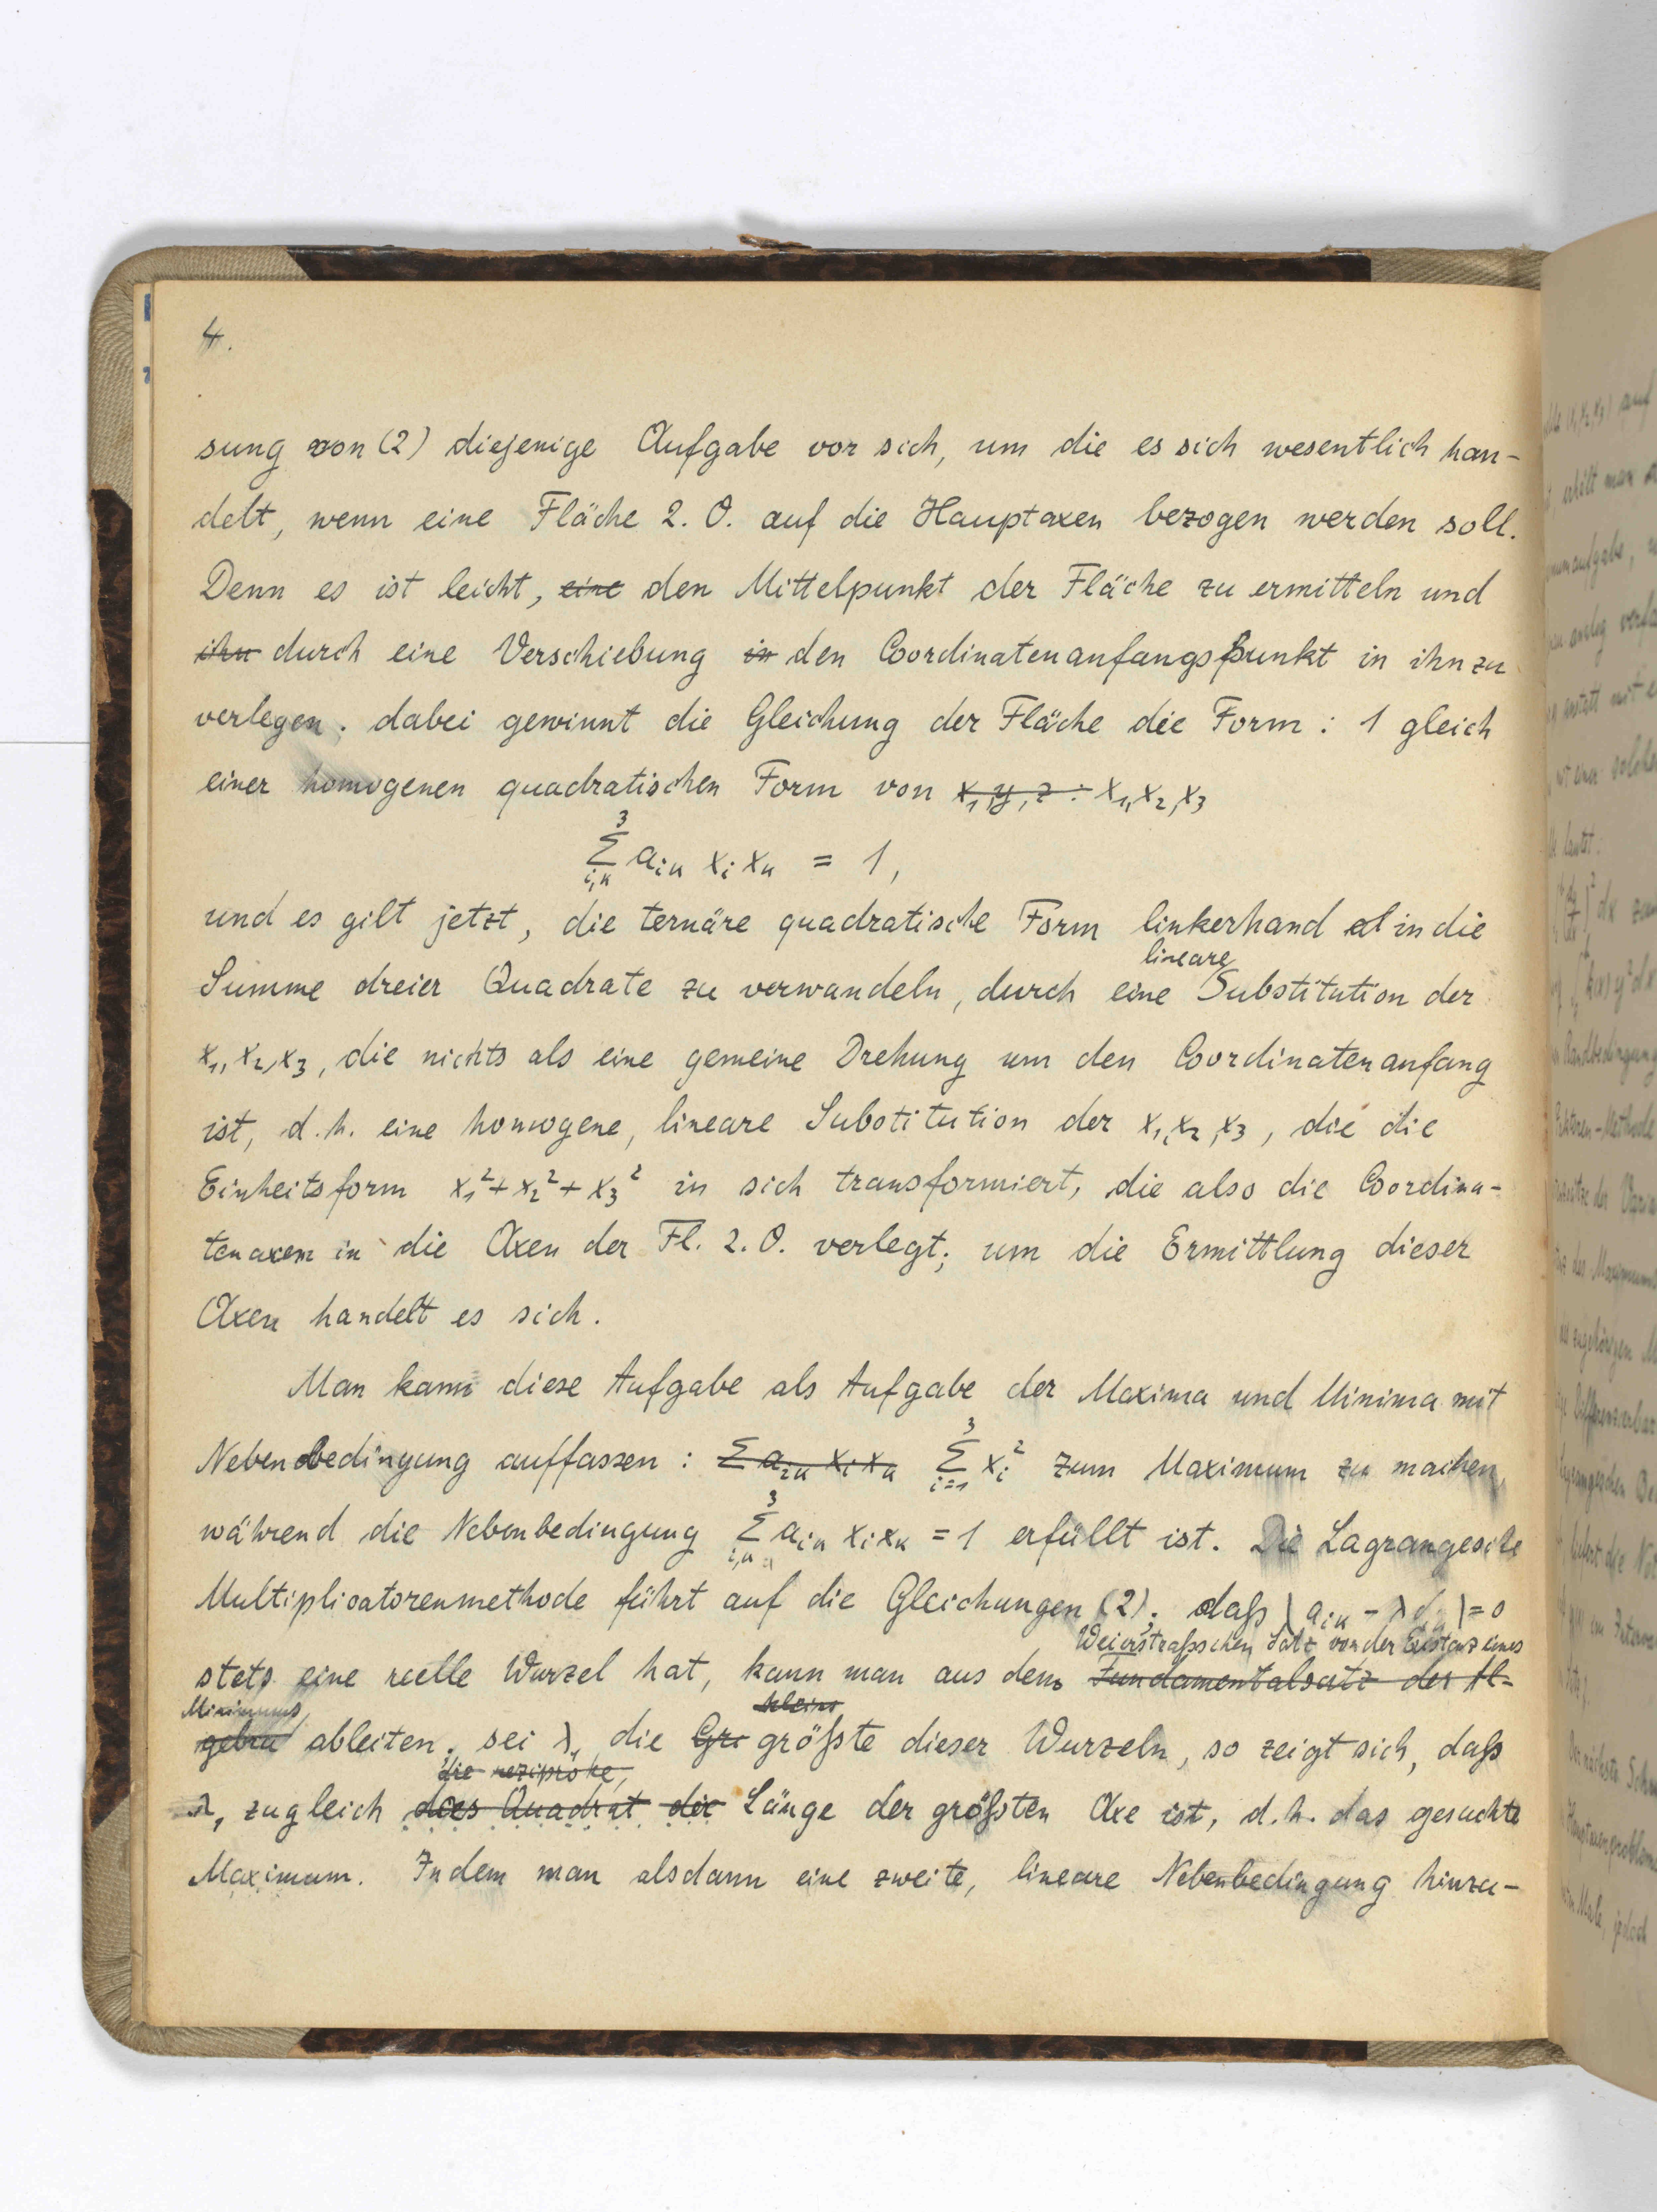 4.
sung von (2) diejenige Aufgabe vor sich, um die es sich wesentlich han-
delt, wenn eine Fläche 2. O. auf die Hauptaxen bezogen werden soll.
Denn es ist leicht, eine den Mittelpunkt der Fläche zu ermitteln und
ihn durch eine Verschiebung in den Coordinatenanfangspunkt in ihn zu
verlegen; dabei gewinnt die Gleichung der Fläche die Form: 1 gleich
einer homogenen quadratischen Form von x, y, z : x₁, x₂, x₃
∑³ᵢ,ₖ aᵢₖ xᵢ xₖ = 1,
und es gilt jetzt, die ternäre quadratische Form linkerhand in die
lineare
Summe dreier Quadrate zu verwandeln, durch eine Substitution der
x₁, x₂, x₃, die nichts als eine gemeine Drehung um den Coordinatenanfang
ist, d.h. eine homogene, lineare Substitution der x₁, x₂, x₃, die die
Einheitsform x₁² + x₂² + x₃² in sich transformiert, die also die Coordina-
tenaxen in die Axen der Fl. 2. O. verlegt; um die Ermittlung dieser
Axen handelt es sich.
Man kann diese Aufgabe als Aufgabe der Maxima und Minima mit
Nebenbedingung auffassen: ∑ aᵢₖ xᵢ xₖ ∑³ᵢ₌₁ xᵢ² zum Maximum zu machen,
während die Nebenbedingung ∑³ᵢ,ₖ aᵢₖ xᵢ xₖ = 1 erfüllt ist. Die Lagrangesche
Multiplicatorenmethode führt auf die Gleichungen (2); daß | aᵢₖ - λδᵢₖ | = 0
Weierstraßschen Satz von der Existenz eines
stets eine reelle Wurzel hat, kann man aus dem Fundamentalsatz der Al-
Minimums kleins
gebra ableiten; sei λ₁ die Gr größte dieser Wurzeln, so zeigt sich, daß
die reziproke,
λ₁ zugleich das Quadrat der Länge der größten Axe ist, d.h. das gesuchte
Maximum. Indem man alsdann eine zweite, lineare Nebenbedingung hinzu-